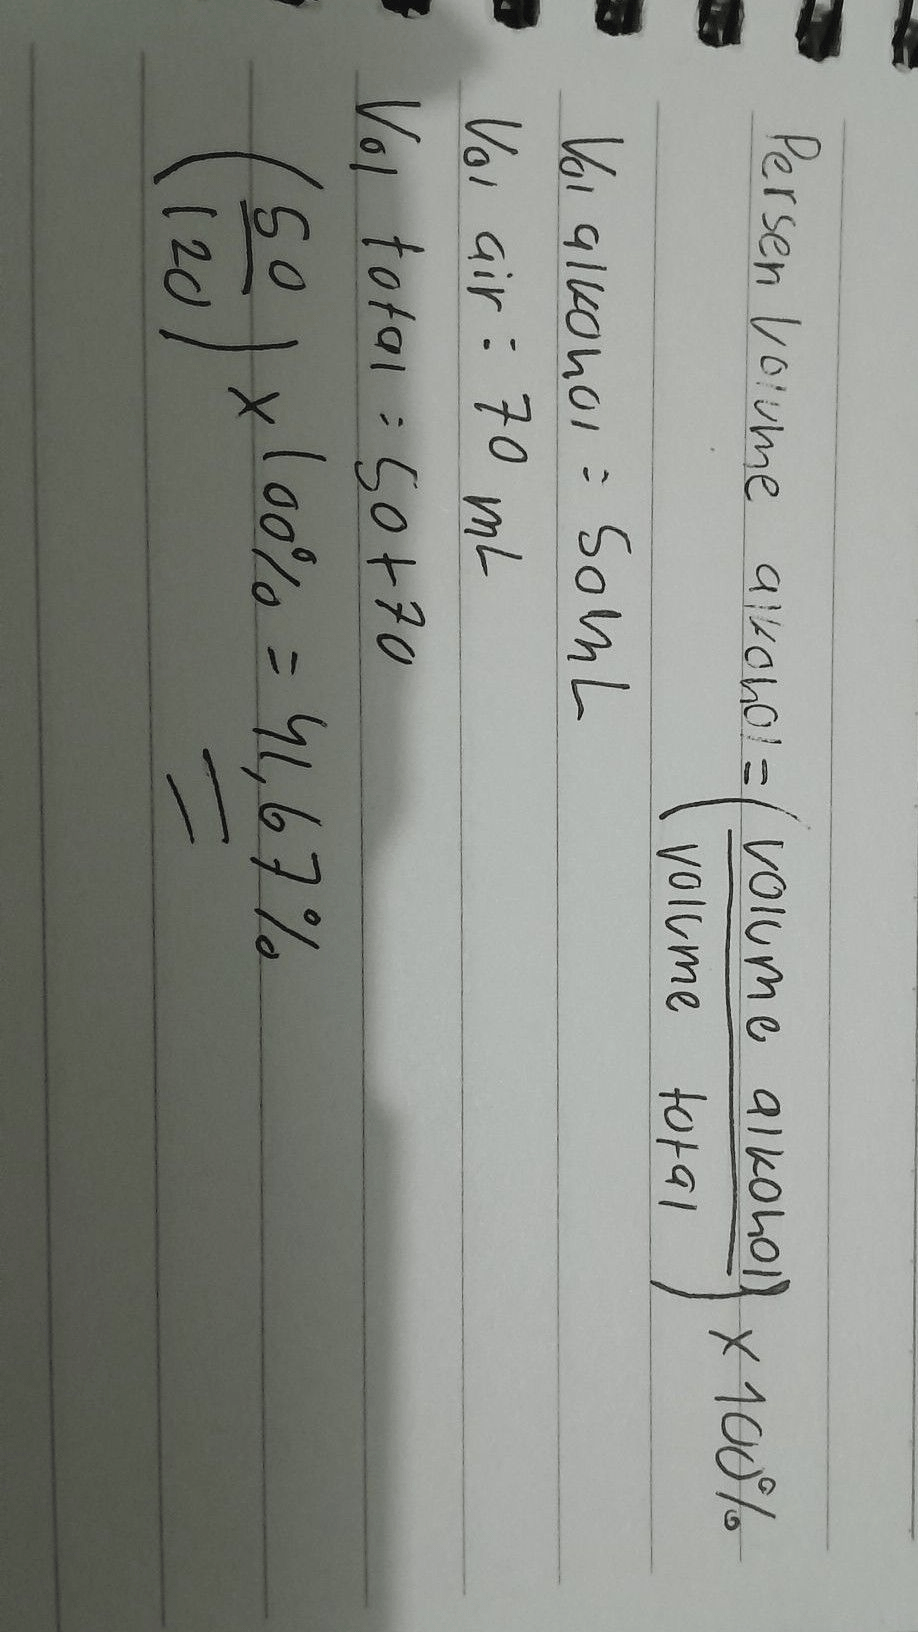 Persen volume alkohol = (volume alkohol) x 100%
(volume total)
Vol alkohol = 50mL
Vol air = 70 mL
Vol total = 50+70
(50) x 100% = 41,67%
(120)